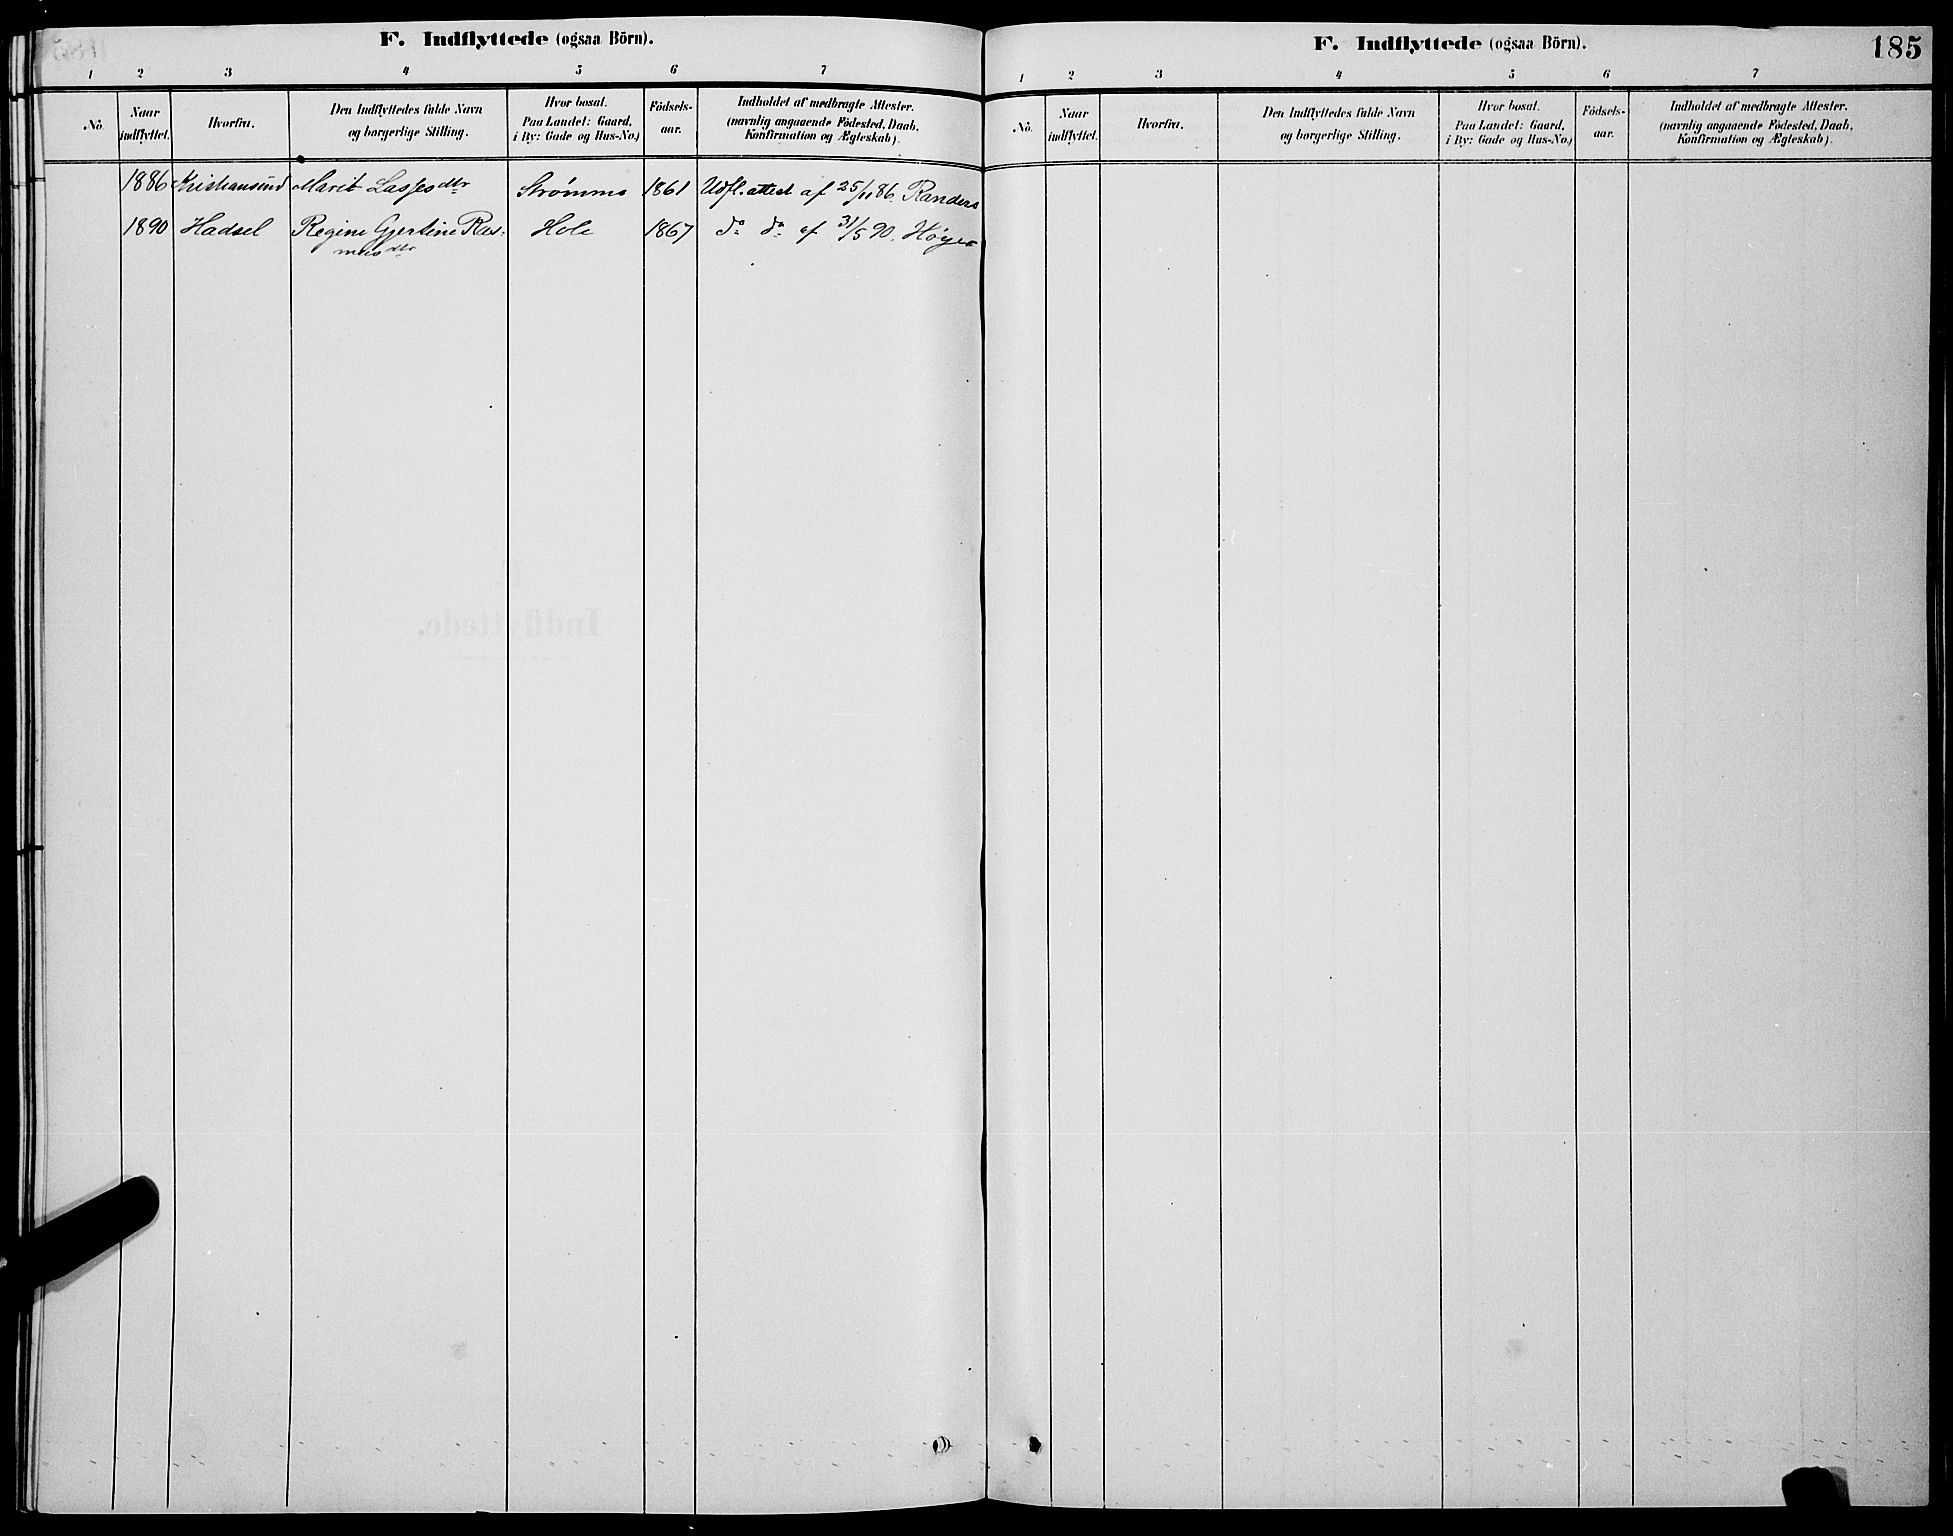 F. Indflyttede (ogsaa Börn).
1 2 3 4 5 6 7
No. Naar indflyttet. Hvorfra. Den Indflyttedes fulde Navn og borgerlige Stilling. Hvor bosat. Paa Landet: Gaard, i By: Gade og Hus-No.) Födsels-aar. Indholdet af medbragte Attester. (navnlig angaaende Födested, Daab, Konfirmation og Ægteskab).
1886 Kristiansund Marit Lassesdtr Strømme 1861 Udfl. attest af 25/11 86. Randers
1890 Hadsel Regine Gjertine Ras- Hole 1867 do do af 31/5 90. Høyer
musdtr
F. Indflyttede (ogsaa Börn).
185
1 2 3 4 5 6 7
No. Naar indflyttet. Hvorfra. Den Indflyttedes fulde Navn og borgerlige Stilling. Hvor bosat. Paa Landet: Gaard, i By: Gade og Hus-No.) Födsels-aar. Indholdet af medbragte Attester. (navnlig angaaende Födested, Daab, Konfirmation og Ægteskab).